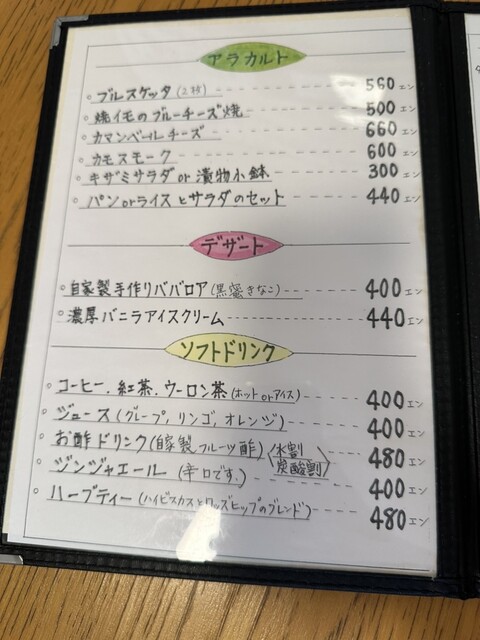 アラカルト
◦ブルスケッタ(2枚) 560エン
◦焼イモのブルーチーズ焼 500エン
◦カマンベールチーズ 660エン
◦カモスモーク 600エン
◦キザミサラダor漬物小鉢 300エン
◦パンorライスとサラダのセット 440エン
デザート
◦自家製手作りババロア(黒蜜きなこ) 400エン
◦濃厚バニラアイスクリーム 440エン
ソフトドリンク
◦コーヒー、紅茶、ウーロン茶(ホットorアイス) 400エン
◦ジュース(グレープ、リンゴ、オレンジ) 400エン
◦お酢ドリンク(自家製フルーツ酢)〈水割 炭酸割〉 480エン
◦ジンジャエール(辛口です。) 400エン
◦ハーブティー(ハイビスカスとローズヒップのブレンド) 480エン